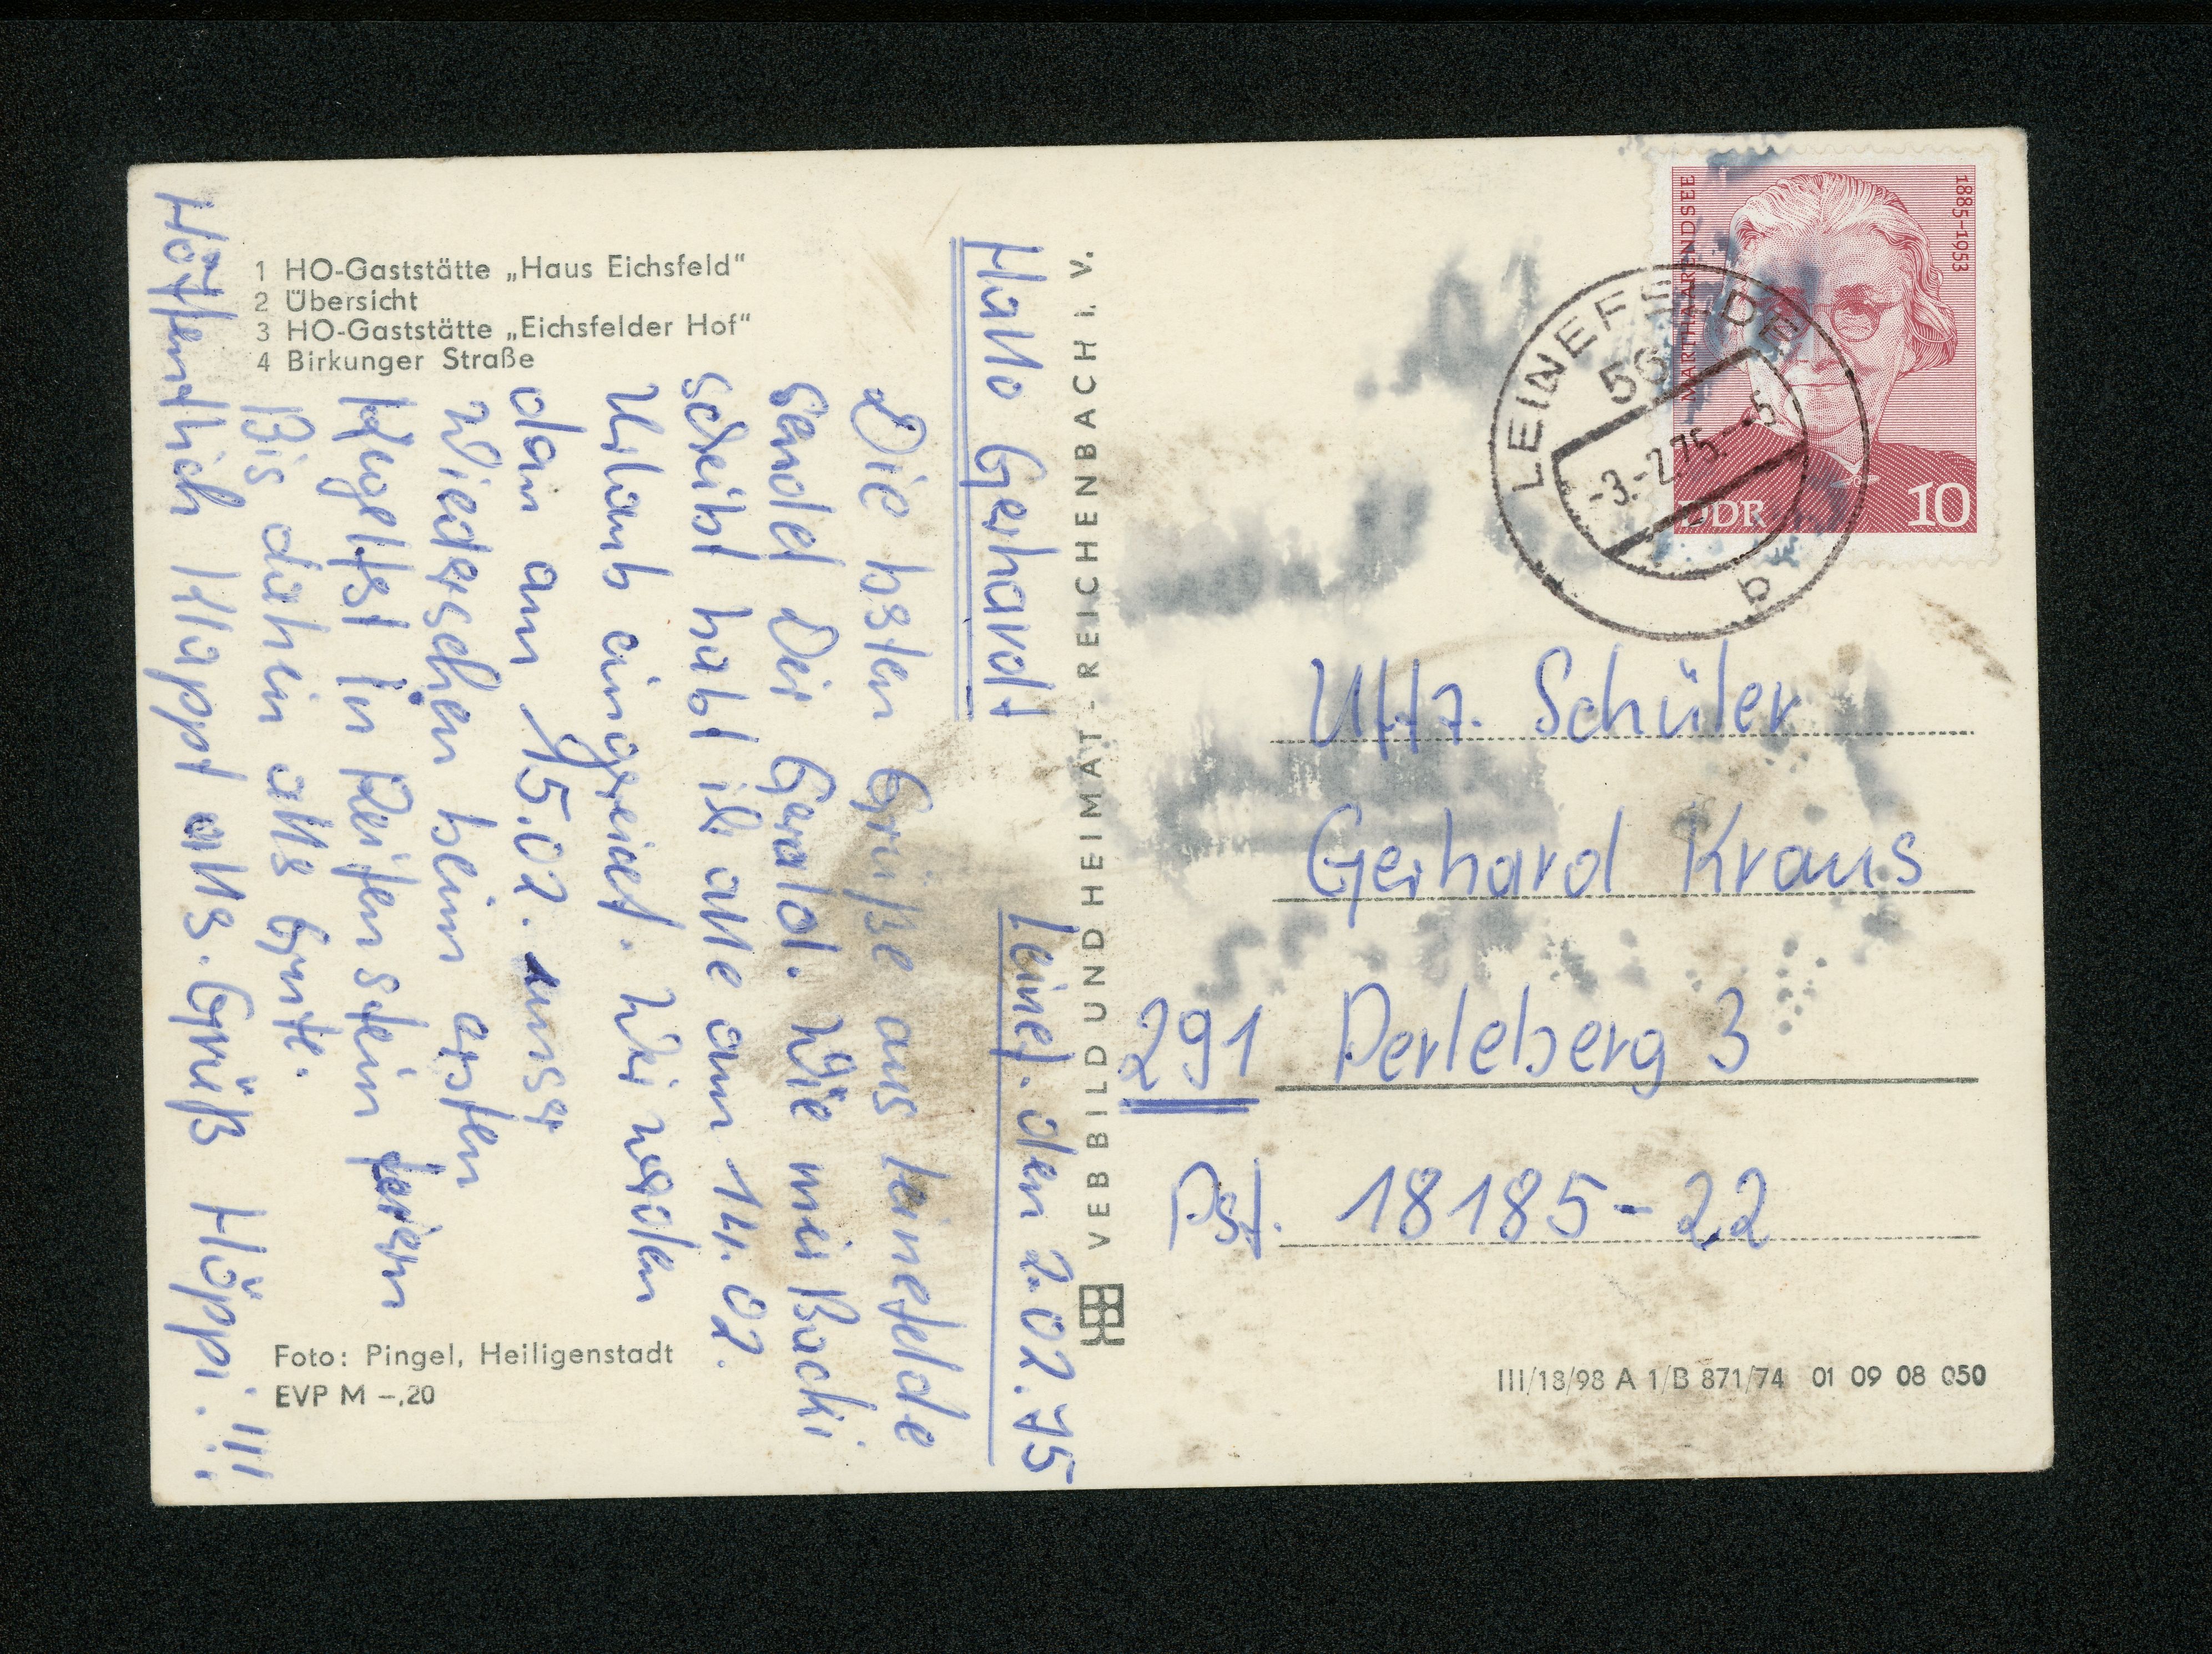 1 HO-Gaststätte „Haus Eichsfeld"
2 Übersicht
3 HO-Gaststätte „Eichsfelder Hof"
4 Birkunger Straße
Hallo Gerhard
Leinef. den 2.02.75
Die bsten Grüße aus Leinefelde
sendet Dir Gerald. Wie mir Backi
schreibt habt ih alle am 14.02.
Urlaub eingereicht. Wir werden
dan am 15.02. unser
Wiedersehen beim ersten
in Reifenstein feiern
Bis dahin alls Gute.
Hoffentlich klappt alls. Gruß Höppi.!!!
Foto: Pingel, Heiligenstadt
EVP M –,20
VEB BILD UND HEIMAT - REICHENBACH I. V.
MARTHA ARENDSEE
1885-1953
DDR
10
LEINEFELDE
56
-3.-2.75.-
b
Uffz. Schüler
Gerhard Kraus
291 Perleberg 3
Psf. 18185-22
III/18/98 A 1/B 871/74 01 09 08 050